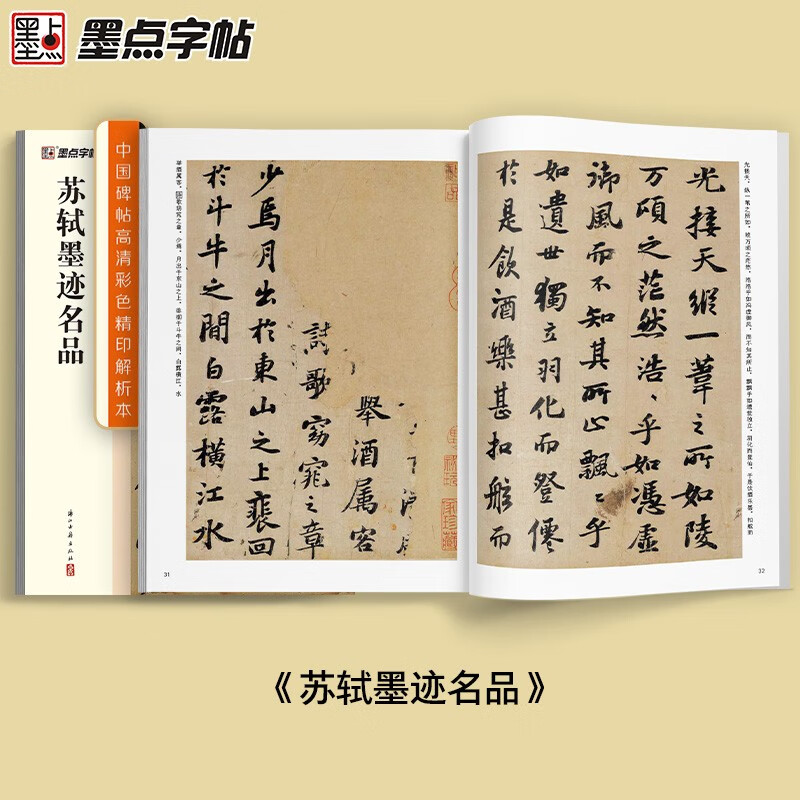 墨点字帖
墨点字帖
苏轼墨迹名品
中国碑帖高清彩色精印解析本
浙江古籍出版社
舉酒属客
詩歌窈窕之章
少焉月出於東山之上裴回
於斗牛之間白露横江水
31
光接天。纵一苇之所如，陵万顷之茫然。浩浩乎如冯虚御风，而不知其所止；飘飘乎如遗世独立，羽化而登仙。于是饮酒乐甚，扣舷而
光接天縱一葦之所如陵
万頃之茫然浩〻乎如馮虛
御風而不知其所止飄〻乎
如遺世獨立羽化而登僊
於是飲酒樂甚扣舷而
32
《苏轼墨迹名品》